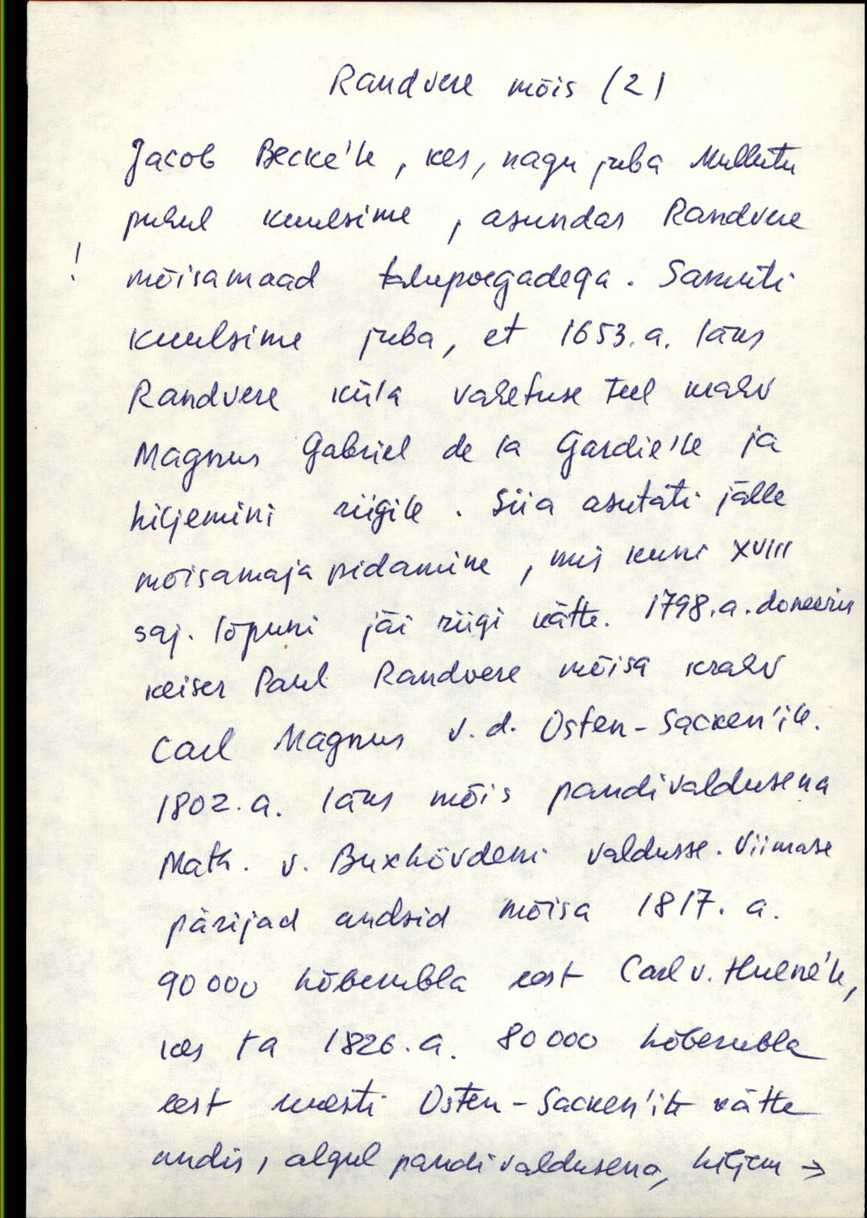 Randvere mõis (2)
Jacob Becke'le, kes, nagu juba Mullutu
puhul kuulsime, asundas Randvere
! mõisamaad talupoegadega. Samuti
kuulsime juba, et 1653.a. läks
Randvere küla vahetuse teel krahv
Magnus Gabriel de la Gardie'le ja
hiljemini riigile. Siia asutati jälle
mõisamaja pidamine, mis kuni XVIII
saj. lõpuni jäi riigi kätte. 1798.a. doneeris
keiser Paul Randvere mõisa krahv
Carl Magnus v.d. Osten-Sacken'ile.
1802.a. läks mõis pandivaldusena
Math. v. Buxhövdeni valdusse. Viimase
pärijad andsid mõisa 1817.a.
90 000 hõberubla eest Carl v. Huene'le,
kes ta 1826.a. 80 000 hõberubla
eest uuesti Osten-Sacken'ile kätte
andis, algul pandivaldusena, hiljem →